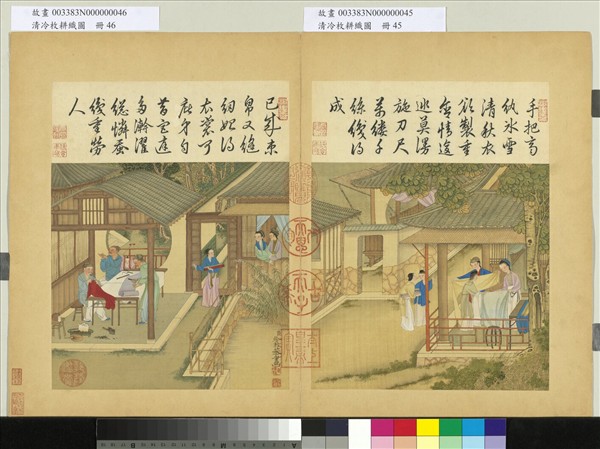 故畫 003383N000000046
清冷枚耕織圖 冊 46
故畫 003383N000000045
清冷枚耕織圖 冊 45
手把齊
紈冰雪
清秋衣
欲製重
含情逡
巡莫漫
施刀尺
萬縷千
絲織得
成
已成束
帛又縫
紉始得
衣裳可
庇身自
昔宮庭
多澣濯
總憐蠶
織重勞
人